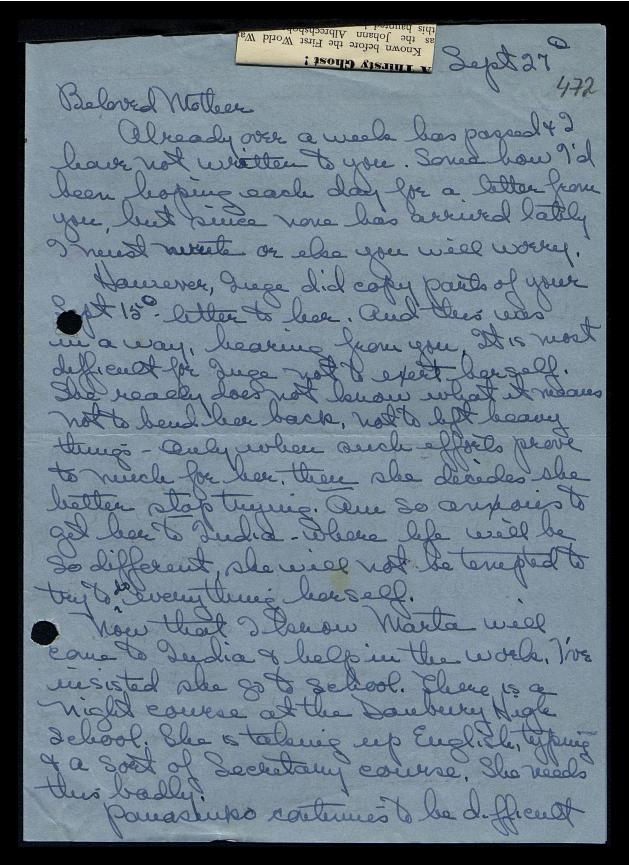 A Thirsty Ghost!
Known before the First World Wa
as the Johann Albrechtshöh
this haunted
Sept 27º
472
Beloved Mother
Already over a week has passed & I
have not written to you. Some how I'd
been hoping each day for a letter from
you, but since none has arrived lately
I must write or else you will worry.
However, Inge did copy parts of your
Sept 15º letter to her. And this was
in a way, hearing from you. It is most
difficult for Inge not to exert herself.
She really does not know what it means
not to bend her back, not to lift heavy
things - only when such efforts prove
to much for her, then she decides she
better stop trying. Am so anxious to
get her to India - where life will be
so different, she will not be tempted to
try to do everything herself.
Now that I know Marta will
come to India & help in the work, I've
insisted she go to school. There is a
night course at the Danbury High
School. She is taking up English, typing
& a sort of Secretary course. She needs
this badly.
Panasenko continues to be difficult